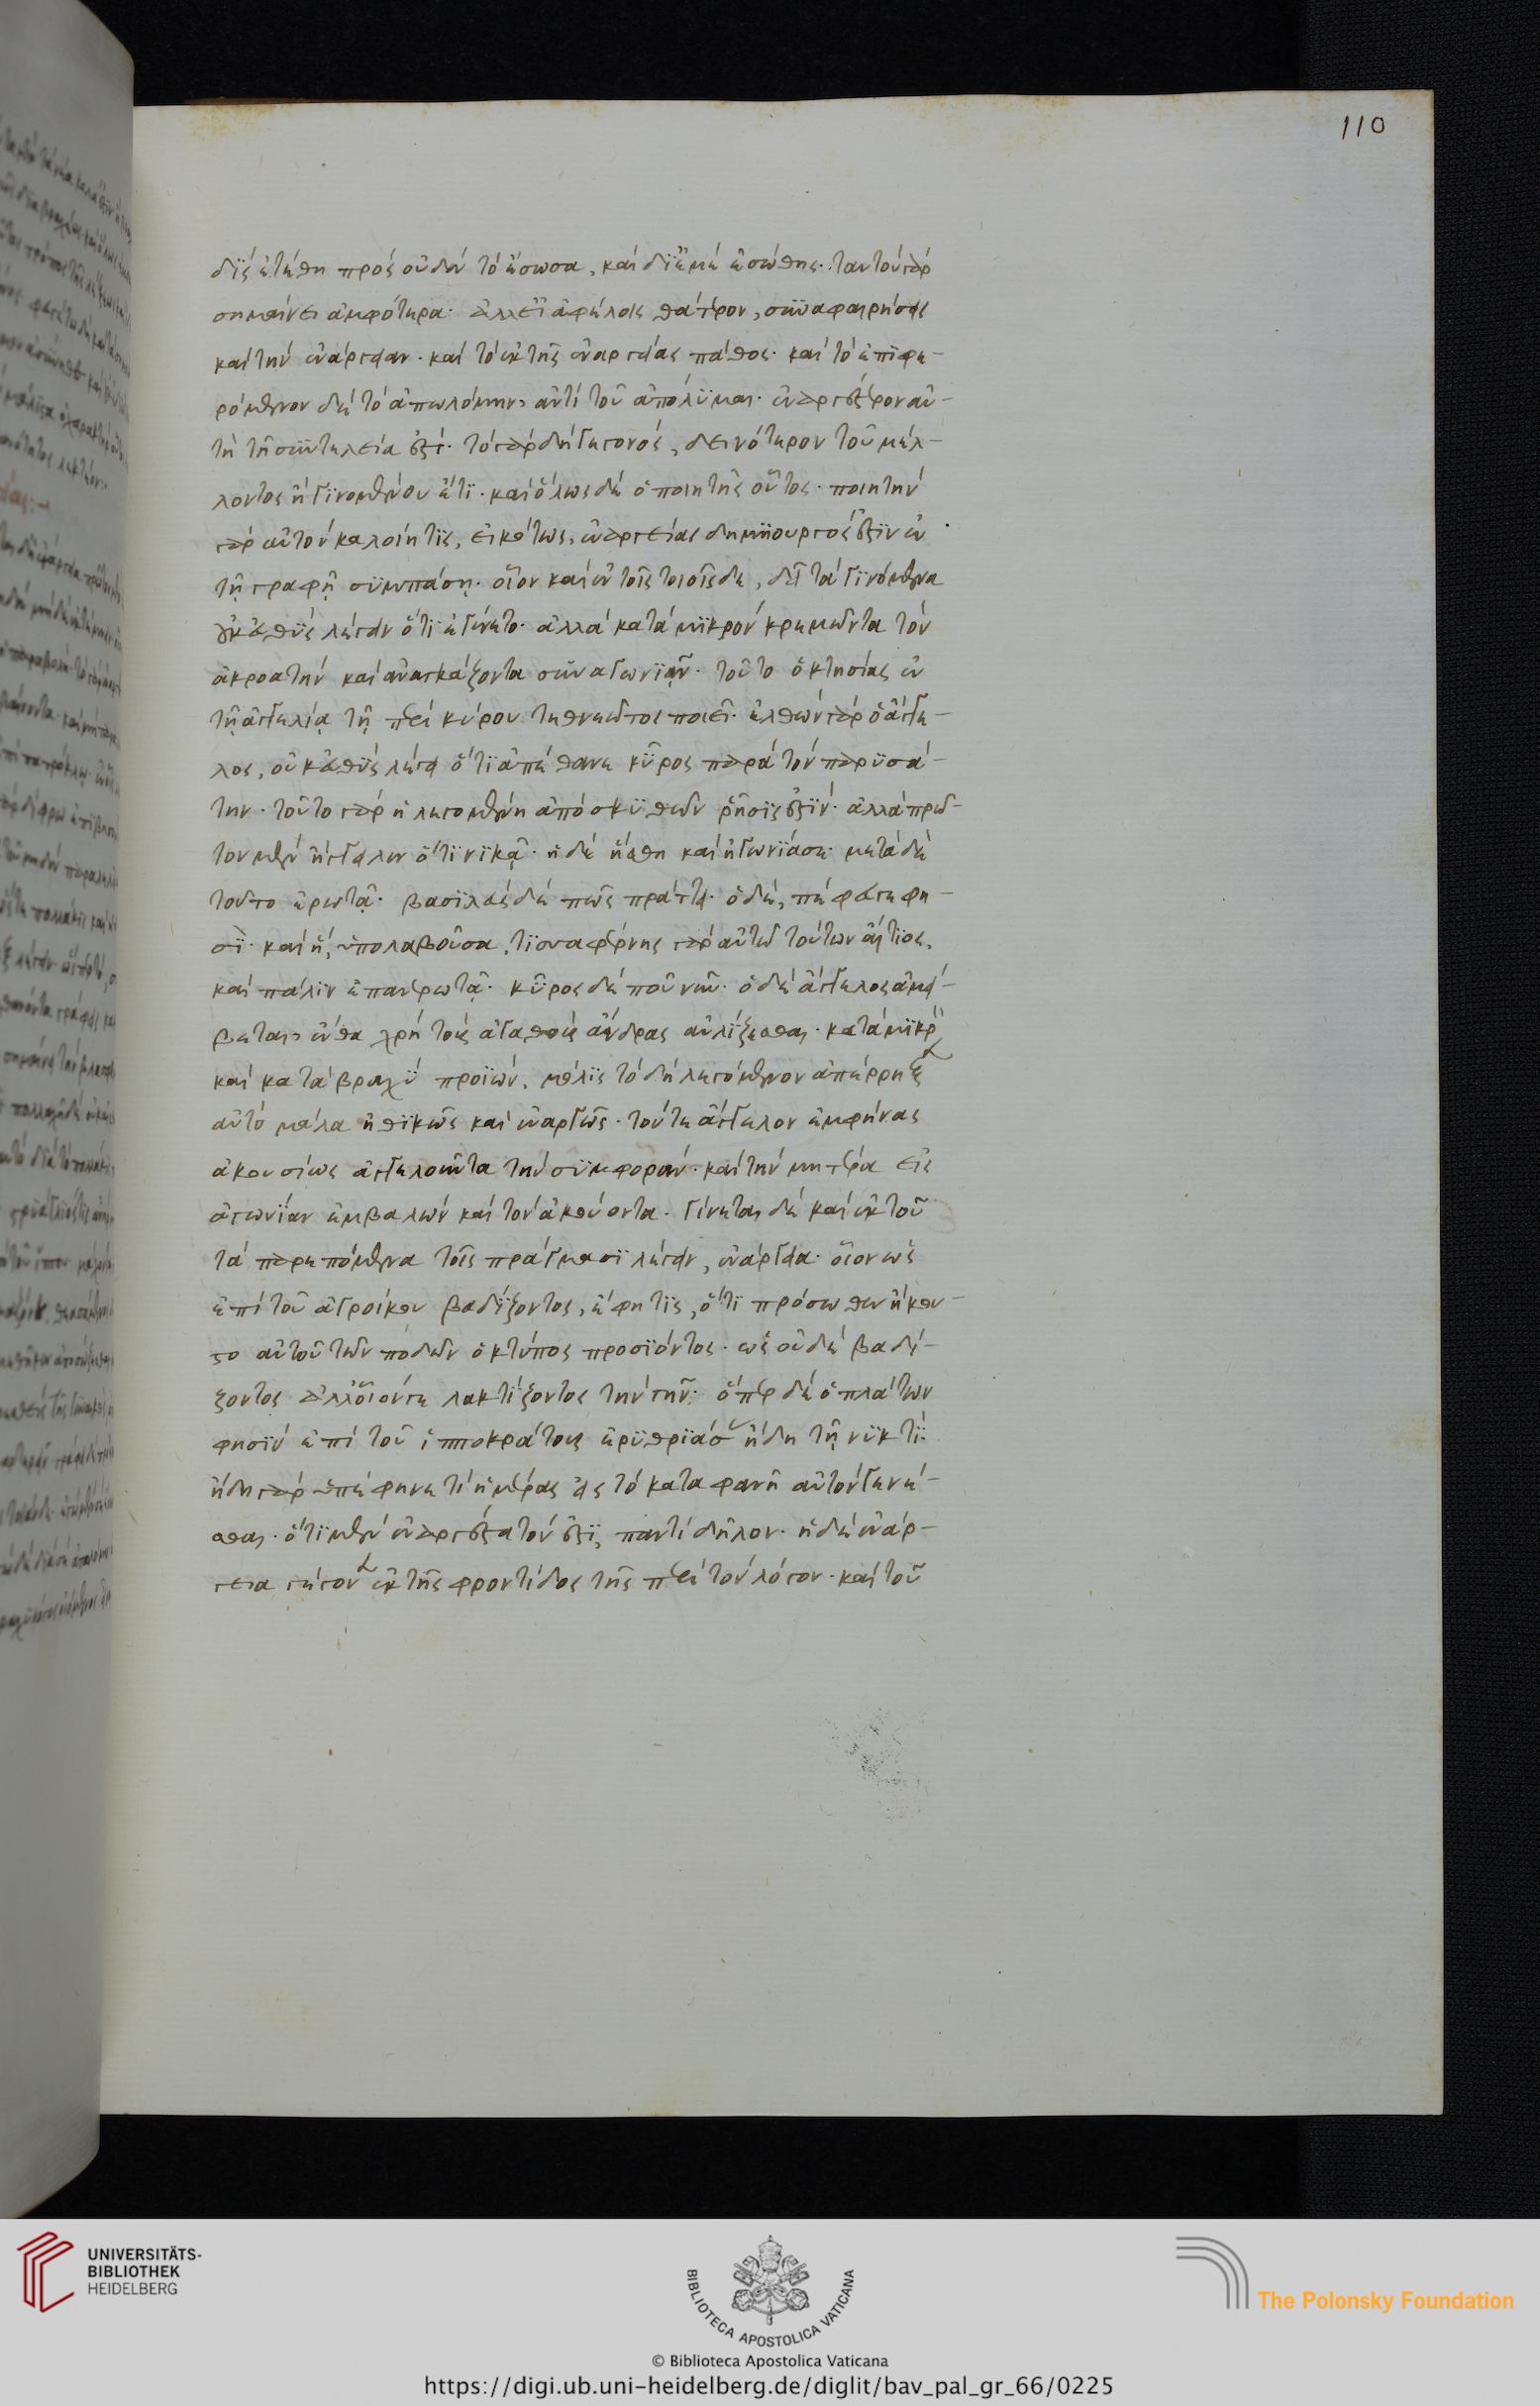 110
δὶς ἐτέθη πρὸς οὐδὲν τὸ ἔσωσα, καὶ δι᾽ ἐμὲ ἐσώθης. ταυτὸν γὰρ
σημαίνει ἀμφότερα. ἀλλ᾽ εἰ ἀφέλοις θάτερον, συναφαιρήσεις
καὶ τὴν ἐνάργειαν. καὶ τὸ ἐκ τῆς ἐναργείας πάθος. καὶ τὸ ἐπιφε-
ρόμενον δὲ τὸ ἀπωλόμην, ἀντὶ τοῦ ἀπόλυμαι. ἐναργέστερον αὐ-
τῇ τῇ συντελείᾳ ἐστί. τὸ γὰρ δὴ γεγονός, δεινότερον τοῦ μέλ-
λοντος ἢ γινομένου ἔτι. καὶ ὅλως δὲ ὁ ποιητὴς οὗτος. ποιητὴν
γὰρ αὐτὸν καλοίη τις, εἰκότως, ἐναργείας δημιουργός ἐστιν ἐν
τῇ γραφῇ συμπάσῃ. οἷον καὶ ἐν τοῖς τοιοῖσδε, δεῖ τὰ γινόμενα
οὐκ εὐθὺς λέγειν ὅτι ἐγένετο. ἀλλὰ κατὰ μικρὸν κρεμῶντα τὸν
ἀκροατὴν καὶ ἀναγκάζοντα συναγωνιᾶν. τοῦτο ὁ κτησίας ἐν
τῇ ἀγγελίᾳ τῇ περὶ κύρου τεθνεῶτος ποιεῖ. ἐλθὼν γὰρ ὁ ἄγγε-
λος, οὐκ εὐθὺς λέγει ὅτι ἀπέθανε κῦρος παρὰ τὸν παρυσά-
την. τοῦτο γὰρ ἡ λεγομένη ἀπὸ σκυθῶν ῥῆσίς ἐστιν. ἀλλὰ πρῶ-
τον μὲν ἤγγειλεν ὅτι νικᾷ. ἡ δὲ ἥσθη καὶ ἠγωνίασε. μετὰ δὲ
τοῦτο ἐρωτᾷ. βασιλεὺς δὲ πῶς πράττει. ὁ δέ, πέφευγε φη-
σί. καὶ ἥ, ὑπολαβοῦσα, τισσαφέρνης γὰρ αὐτῷ τούτων αἴτιος.
καὶ πάλιν ἐπανερωτᾷ. κῦρος δὲ ποῦ νῦν. ὁ δὲ ἄγγελος ἀμεί-
βεται, ἔνθα χρὴ τοὺς ἀγαθοὺς ἄνδρας αὐλίζεσθαι. κατὰ μικρὸν
καὶ κατὰ βραχὺ προϊών, μόλις τὸ δὴ λεγόμενον ἀπέρρηξεν
αὐτὸ μάλα ἠθικῶς καὶ ἐναργῶς. τόν τε ἄγγελον ἐμφήνας
ἀκουσίως ἀγγελοῦντα τὴν συμφοράν. καὶ τὴν μητέρα εἰς
ἀγωνίαν ἐμβαλὼν καὶ τὸν ἀκούοντα. γίνεται δὲ καὶ ἐκ τοῦ
τὰ παρεπόμενα τοῖς πράγμασι λέγειν, ἐνάργεια. οἷον ὡς
ἐπὶ τοῦ ἀγροίκου βαδίζοντος, ἔφη τις, ὅτι πρόσωθεν ἤκου-
στο αὐτοῦ τῶν ποδῶν ὁ κτύπος προσιόντος. ὡς οὐδὲ βαδί-
ζοντος ἀλλ᾽ οἷόν γε λακτίζοντος τὴν γῆν. ὅπερ δὲ ὁ πλάτων
φησὶν ἐπὶ τοῦ ἱπποκράτους ἐρυθριάσας ἤδη τῇ νυκτί.
ἤδη γὰρ ὑπέφηνέ τι ἡμέρας εἰς τὸ καταφανῆ αὐτὸν γενέ-
σθαι. ὅτι μὲν ἐναργέστατόν ἐστι, παντὶ δῆλον. ἡ δὲ ἐνάρ-
γεια γέγονεν ἐκ τῆς φροντίδος τῆς περὶ τὸν λόγον. καὶ τοῦ
UNIVERSITÄTS-
BIBLIOTHEK
HEIDELBERG
BIBLIOTECA APOSTOLICA VATICANA
The Polonsky Foundation
© Biblioteca Apostolica Vaticana
https://digi.ub.uni-heidelberg.de/diglit/bav_pal_gr_66/0225